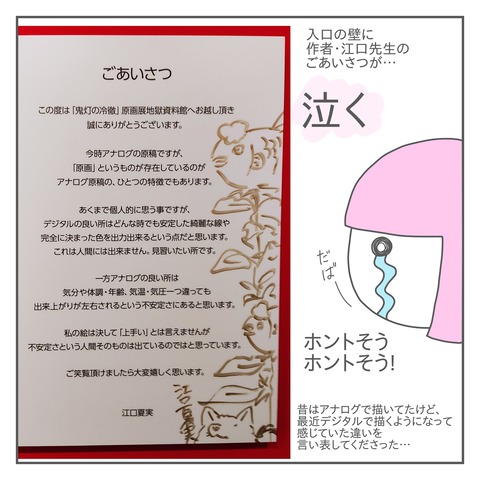 ごあいさつ
この度は「鬼灯の冷徹」原画展地獄資料館へお越し頂き
誠にありがとうございます。
今時アナログの原稿ですが、
「原画」というものが存在しているのが
アナログ原稿の、ひとつの特徴でもあります。
あくまで個人的に思う事ですが、
デジタルの良い所はどんな時でも安定した綺麗な線や
完全に決まった色を出力出来るという点だと思います。
これは人間には出来ません。見習いたい所です。
一方アナログの良い所は
気分や体調・年齢、気温・気圧一つ違っても
出来上がりが左右されるという不安定さにあると思います。
私の絵は決して「上手い」とは言えませんが
不安定さという人間そのものは出ているのではと思っています。
ご笑覧頂けましたら大変嬉しく思います。
江口夏実
江口夏実
入口の壁に
作者・江口先生の
ごあいさつが…
泣く
だばー
ホントそう
ホントそう!
昔はアナログで描いてたけど、
最近デジタルで描くようになって
感じていた違いを
言い表してくださった…